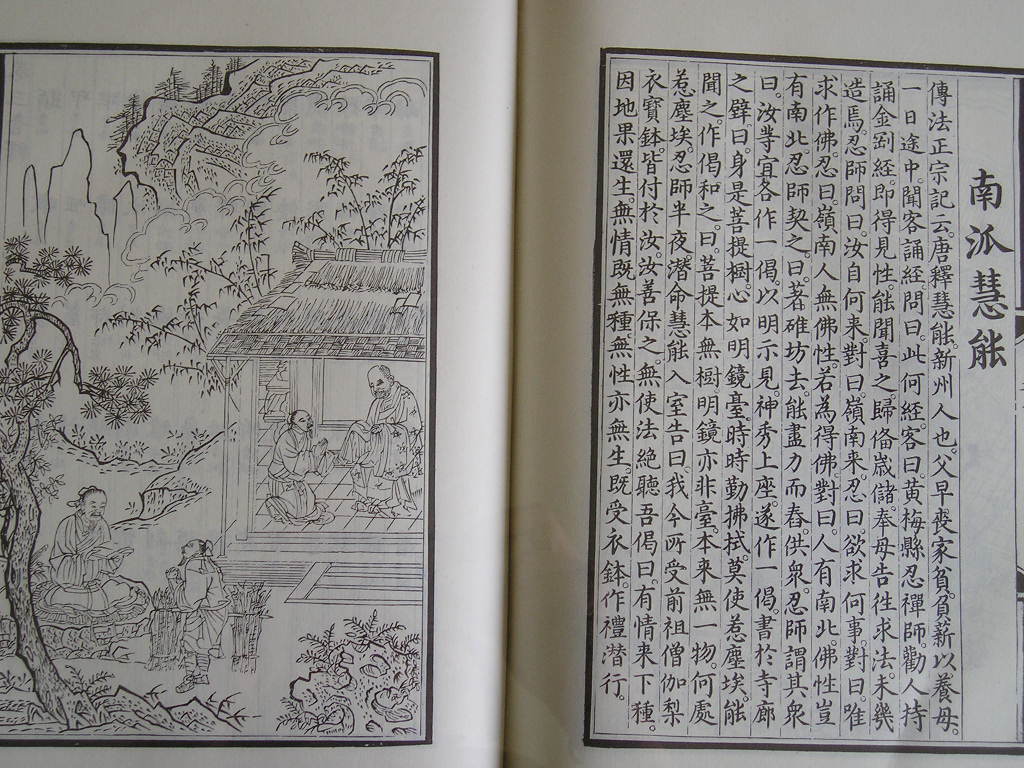 南泒慧能
傳法正宗記云。唐釋慧能。新州人也。父早喪。家貧。負薪以養母。
一日途中。聞客誦經。問曰。此何經。客曰。黃梅縣忍禪師。勸人持
誦金剛經。即得見性。能聞喜之。歸俻歲儲。奉母告徃求法。未幾
造焉。忍師問曰。汝自何来。對曰。嶺南来。忍曰。欲求何事。對曰。唯
求作佛。忍曰。嶺南人無佛性。若為得佛。對曰。人有南北。佛性豈
有南北。忍師契之。曰。著碓坊去。能盡力而舂。供衆。忍師謂其衆
曰。汝等宜各作一偈。以明示見。神秀上座。遂作一偈。書於寺廊
之壁曰。身是菩提樹。心如明鏡臺。時時勤拂拭。莫使惹塵埃。能
聞之。作偈和之。曰。菩提本無樹。明鏡亦非臺。本来無一物。何處
惹塵埃。忍師半夜。潛命慧能入室。告曰。我今所受前祖僧伽梨
衣寶鉢。皆付於汝。汝善保之。無使法絶。聽吾偈曰。有情来下種。
因地果還生。無情既無種。無性亦無生。既受衣鉢。作禮潛行。